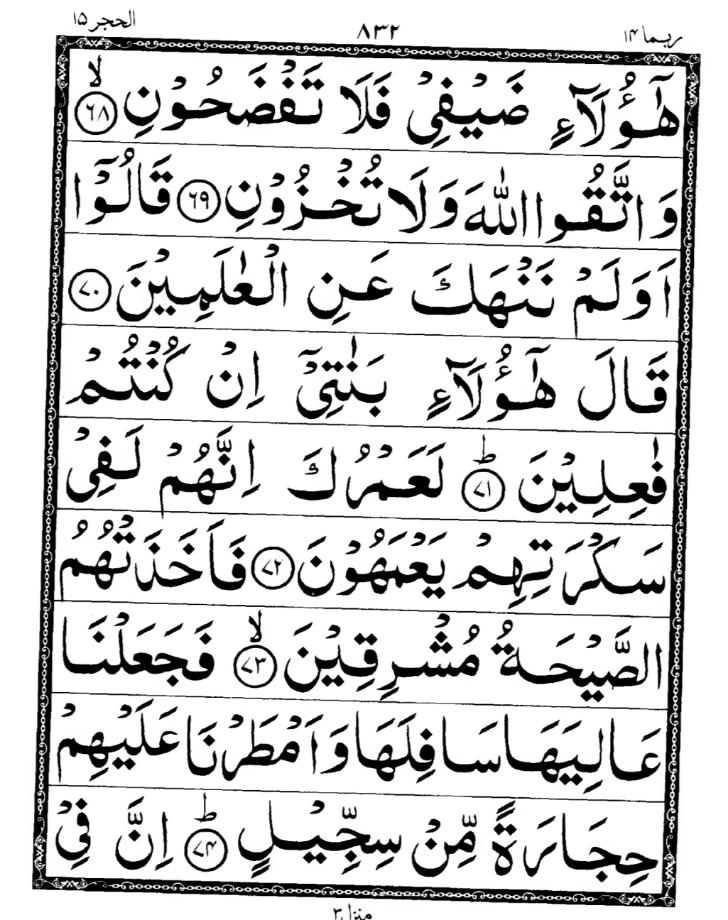 ربما ١٤ ٨٣٢ الحجر ١٥
هٰٓؤُلَآءِ ضَيْفِىْ فَلَا تَفْضَحُوْنِ ۙ‏﴿۶۸﴾
وَاتَّقُوا اللّٰهَ وَلَا تُخْزُوْنِ ﴿۶۹﴾ قَالُوْۤا
اَوَلَمْ نَنْهَكَ عَنِ الْعٰلَمِيْنَ ﴿۷۰﴾
قَالَ هٰٓؤُلَآءِ بَنٰتِىْۤ اِنْ كُنْتُمْ
فٰعِلِيْنَ ؕ‏﴿۷۱﴾ لَعَمْرُكَ اِنَّهُمْ لَفِىْ
سَكْرَتِهِمْ يَعْمَهُوْنَ ﴿۷۲﴾ فَاَخَذَتْهُمُ
الصَّيْحَةُ مُشْرِقِيْنَ ۙ‏﴿۷۳﴾ فَجَعَلْنَا
عَالِيَهَا سَافِلَهَا وَاَمْطَرْنَا عَلَيْهِمْ
حِجَارَةً مِّنْ سِجِّيْلٍ ؕ‏﴿۷۴﴾ اِنَّ فِىْ
منزل ٣